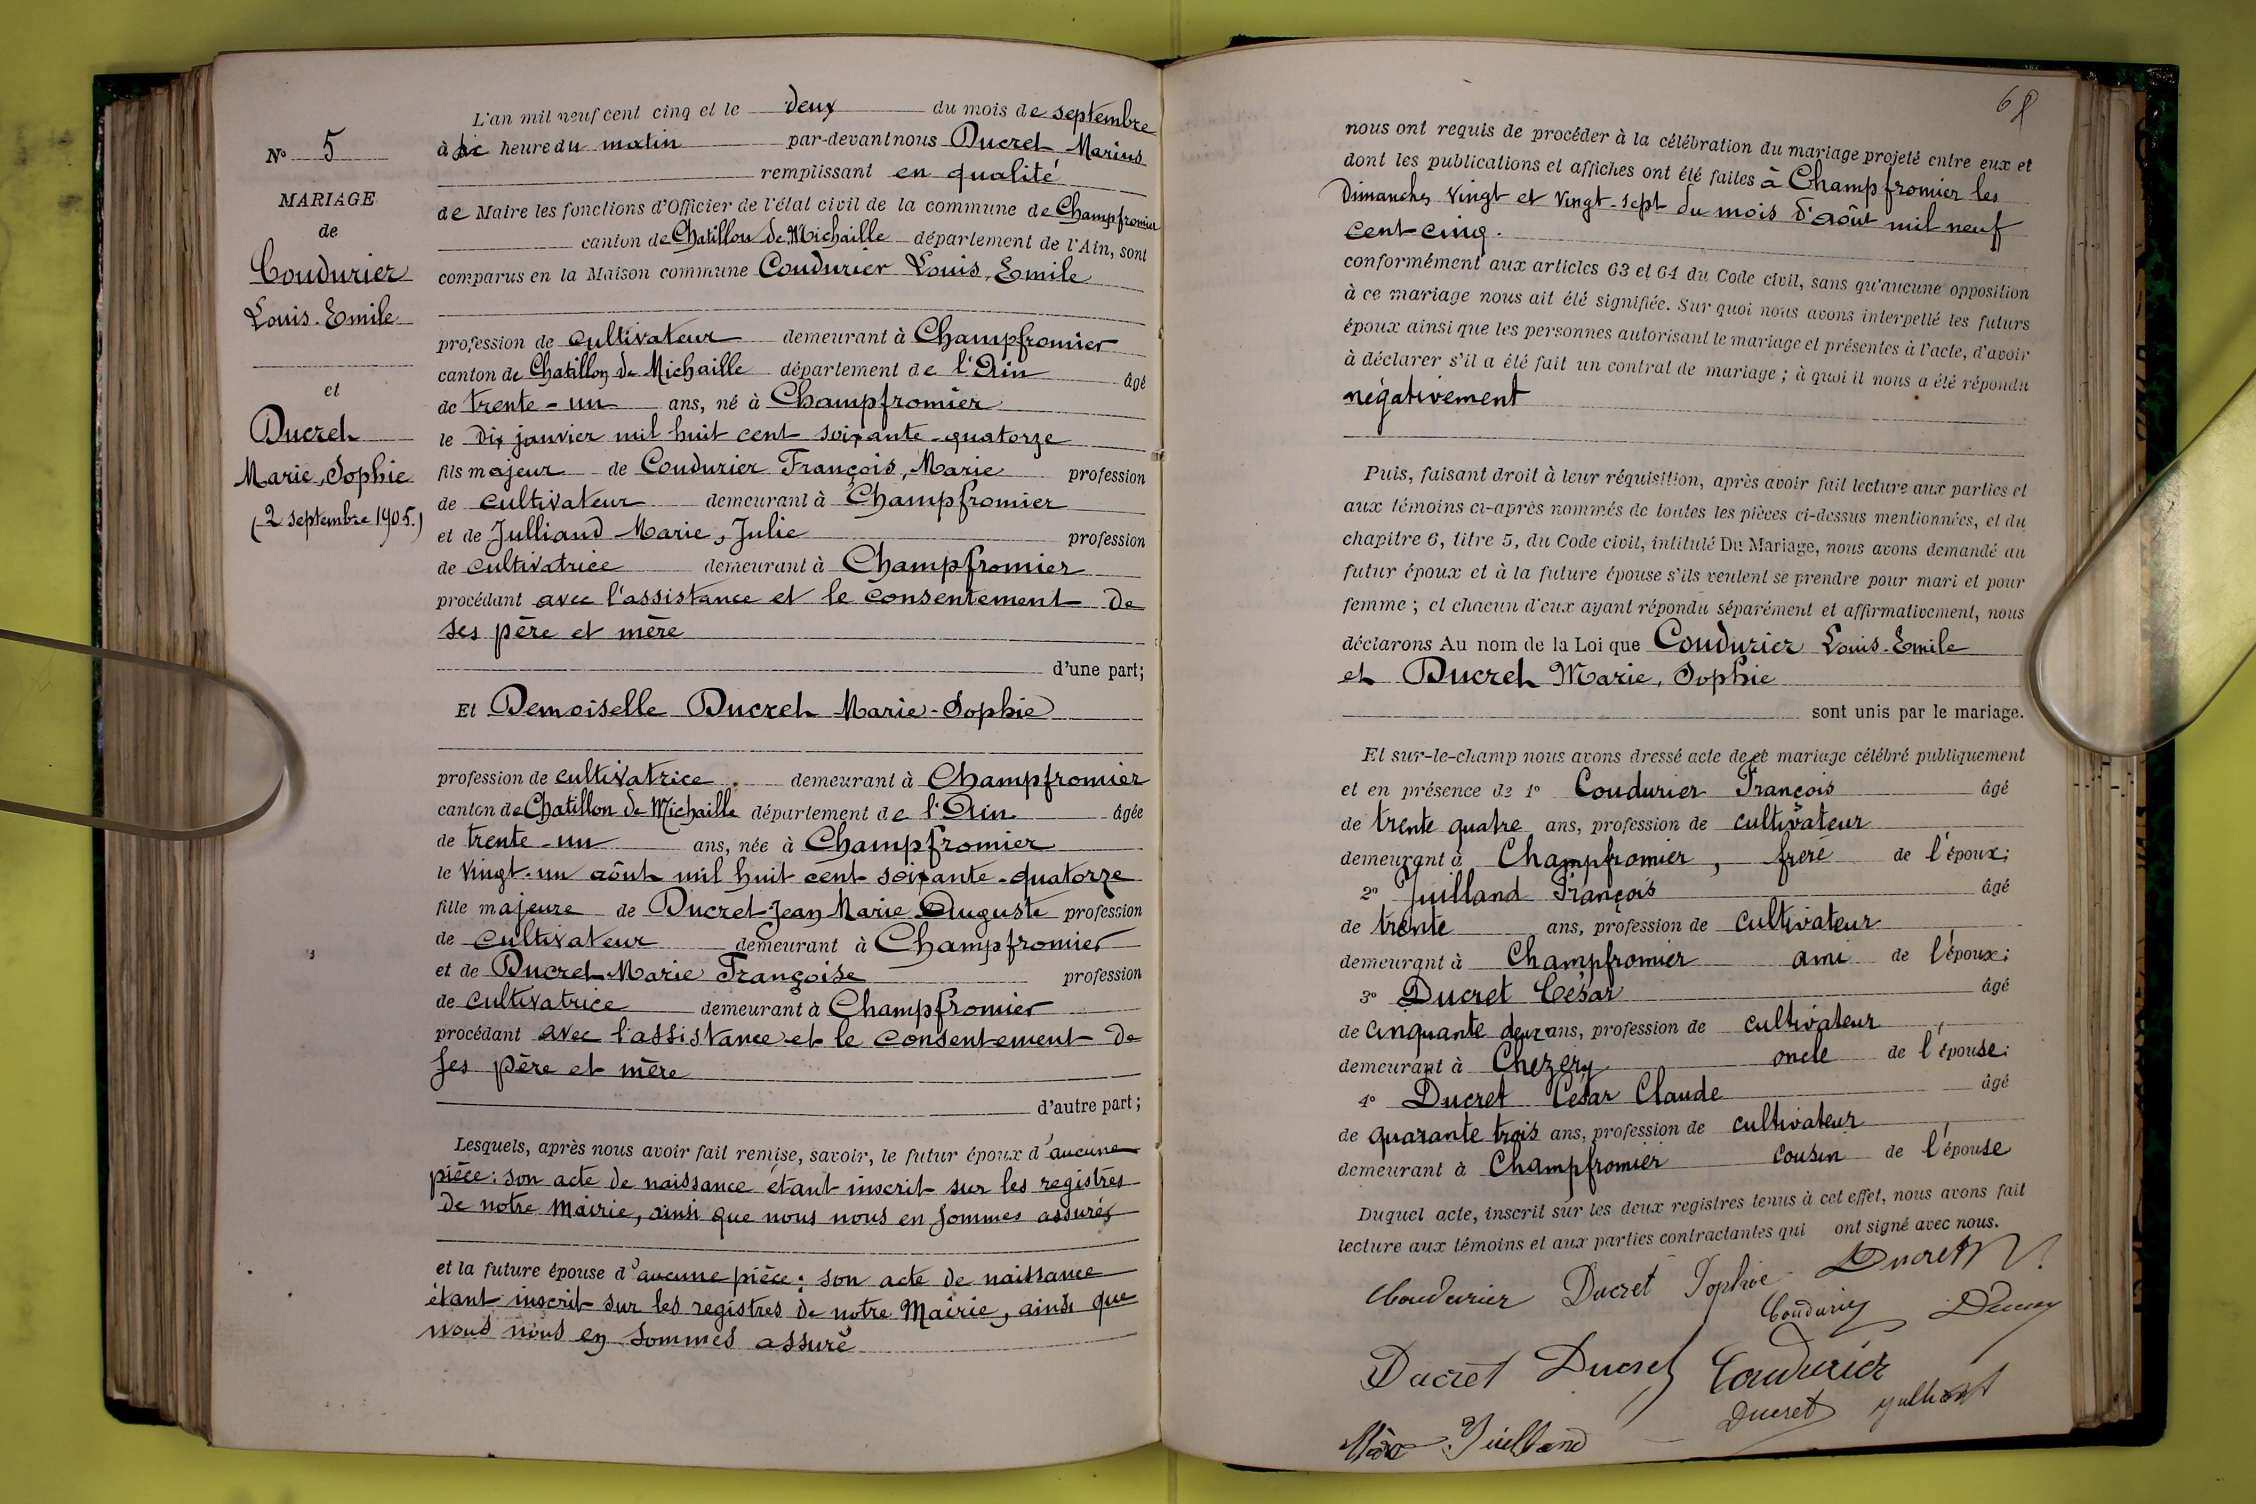 N° 5
MARIAGE
de
Coudurier
Louis-Emile
et
Ducret
Marie, Sophie
(2 septembre 1905.)
L'an mil neuf cent cinq et le deux du mois de septembre
à heure du matin par-devant nous Ducret Marius
remplissant en qualité
de Maire les fonctions d'Officier de l'état civil de la commune de Champfromier
canton de Chatillon de Michaille département de l'Ain, sont
comparus en la Maison commune Coudurier Louis, Emile
profession de cultivateur demeurant à Champfromier
canton de Chatillon de Michaille département de l'Ain âgé
de trente-un ans, né à Champfromier
le dix janvier mil huit cent soixante-quatorze
fils majeur de Coudurier François, Marie profession
de cultivateur demeurant à Champfromier
et de Julliand Marie, Julie profession
de cultivatrice demeurant à Champfromier
procédant avec l'assistance et le consentement de
ses père et mère
d'une part;
Et Demoiselle Ducret Marie-Sophie
profession de cultivatrice demeurant à Champfromier
canton de Chatillon de Michaille département de l'Ain âgée
de trente-un ans, née à Champfromier
le vingt-un août mil huit cent soixante-quatorze
fille majeure de Ducret Jean Marie Auguste profession
de cultivateur demeurant à Champfromier
et de Ducret Marie Françoise profession
de cultivatrice demeurant à Champfromier
procédant avec l'assistance et le consentement de
ses père et mère
d'autre part;
Lesquels, après nous avoir fait remise, savoir, le futur époux d'aucune
pièce: son acte de naissance étant inscrit sur les registres
de notre Mairie, ainsi que nous nous en sommes assurés
et la future épouse d'aucune pièce: son acte de naissance
étant inscrit sur les registres de notre Mairie, ainsi que
nous nous en sommes assuré
68
nous ont requis de procéder à la célébration du mariage projeté entre eux et
dont les publications et affiches ont été faites à Champfromier les
Dimanches vingt et vingt-sept du mois d'août mil neuf
cent-cinq.
conformément aux articles 63 et 64 du Code civil, sans qu'aucune opposition
à ce mariage nous ait été signifiée. Sur quoi nous avons interpellé les futurs
époux ainsi que les personnes autorisant le mariage et présentes à l'acte, d'avoir
à déclarer s'il a été fait un contrat de mariage; à quoi il nous a été répondu
négativement
Puis, faisant droit à leur réquisition, après avoir fait lecture aux parties et
aux témoins ci-après nommés de toutes les pièces ci-dessus mentionnées, et du
chapitre 6, titre 5, du Code civil, intitulé Du Mariage, nous avons demandé au
futur époux et à la future épouse s'ils veulent se prendre pour mari et pour
femme; et chacun d'eux ayant répondu séparément et affirmativement, nous
déclarons Au nom de la Loi que Coudurier Louis-Emile
et Ducret Marie, Sophie
sont unis par le mariage.
Et sur-le-champ nous avons dressé acte de ce mariage célébré publiquement
et en présence de 1° Coudurier François âgé
de trente quatre ans, profession de cultivateur
demeurant à Champfromier, frère de l'époux;
2° Juilland François âgé
de trente ans, profession de cultivateur
demeurant à Champfromier ami de l'époux;
3° Ducret César âgé
de cinquante deux ans, profession de cultivateur
demeurant à Chezery oncle de l'épouse;
4° Ducret César Claude âgé
de quarante trois ans, profession de cultivateur
demeurant à Champfromier cousin de l'épouse
Duquel acte, inscrit sur les deux registres tenus à cet effet, nous avons fait
lecture aux témoins et aux parties contractantes qui ont signé avec nous.
Coudurier Ducret Sophie Ducret
Coudurier
Ducret Ducret Coudurier
Ducret
Juilland